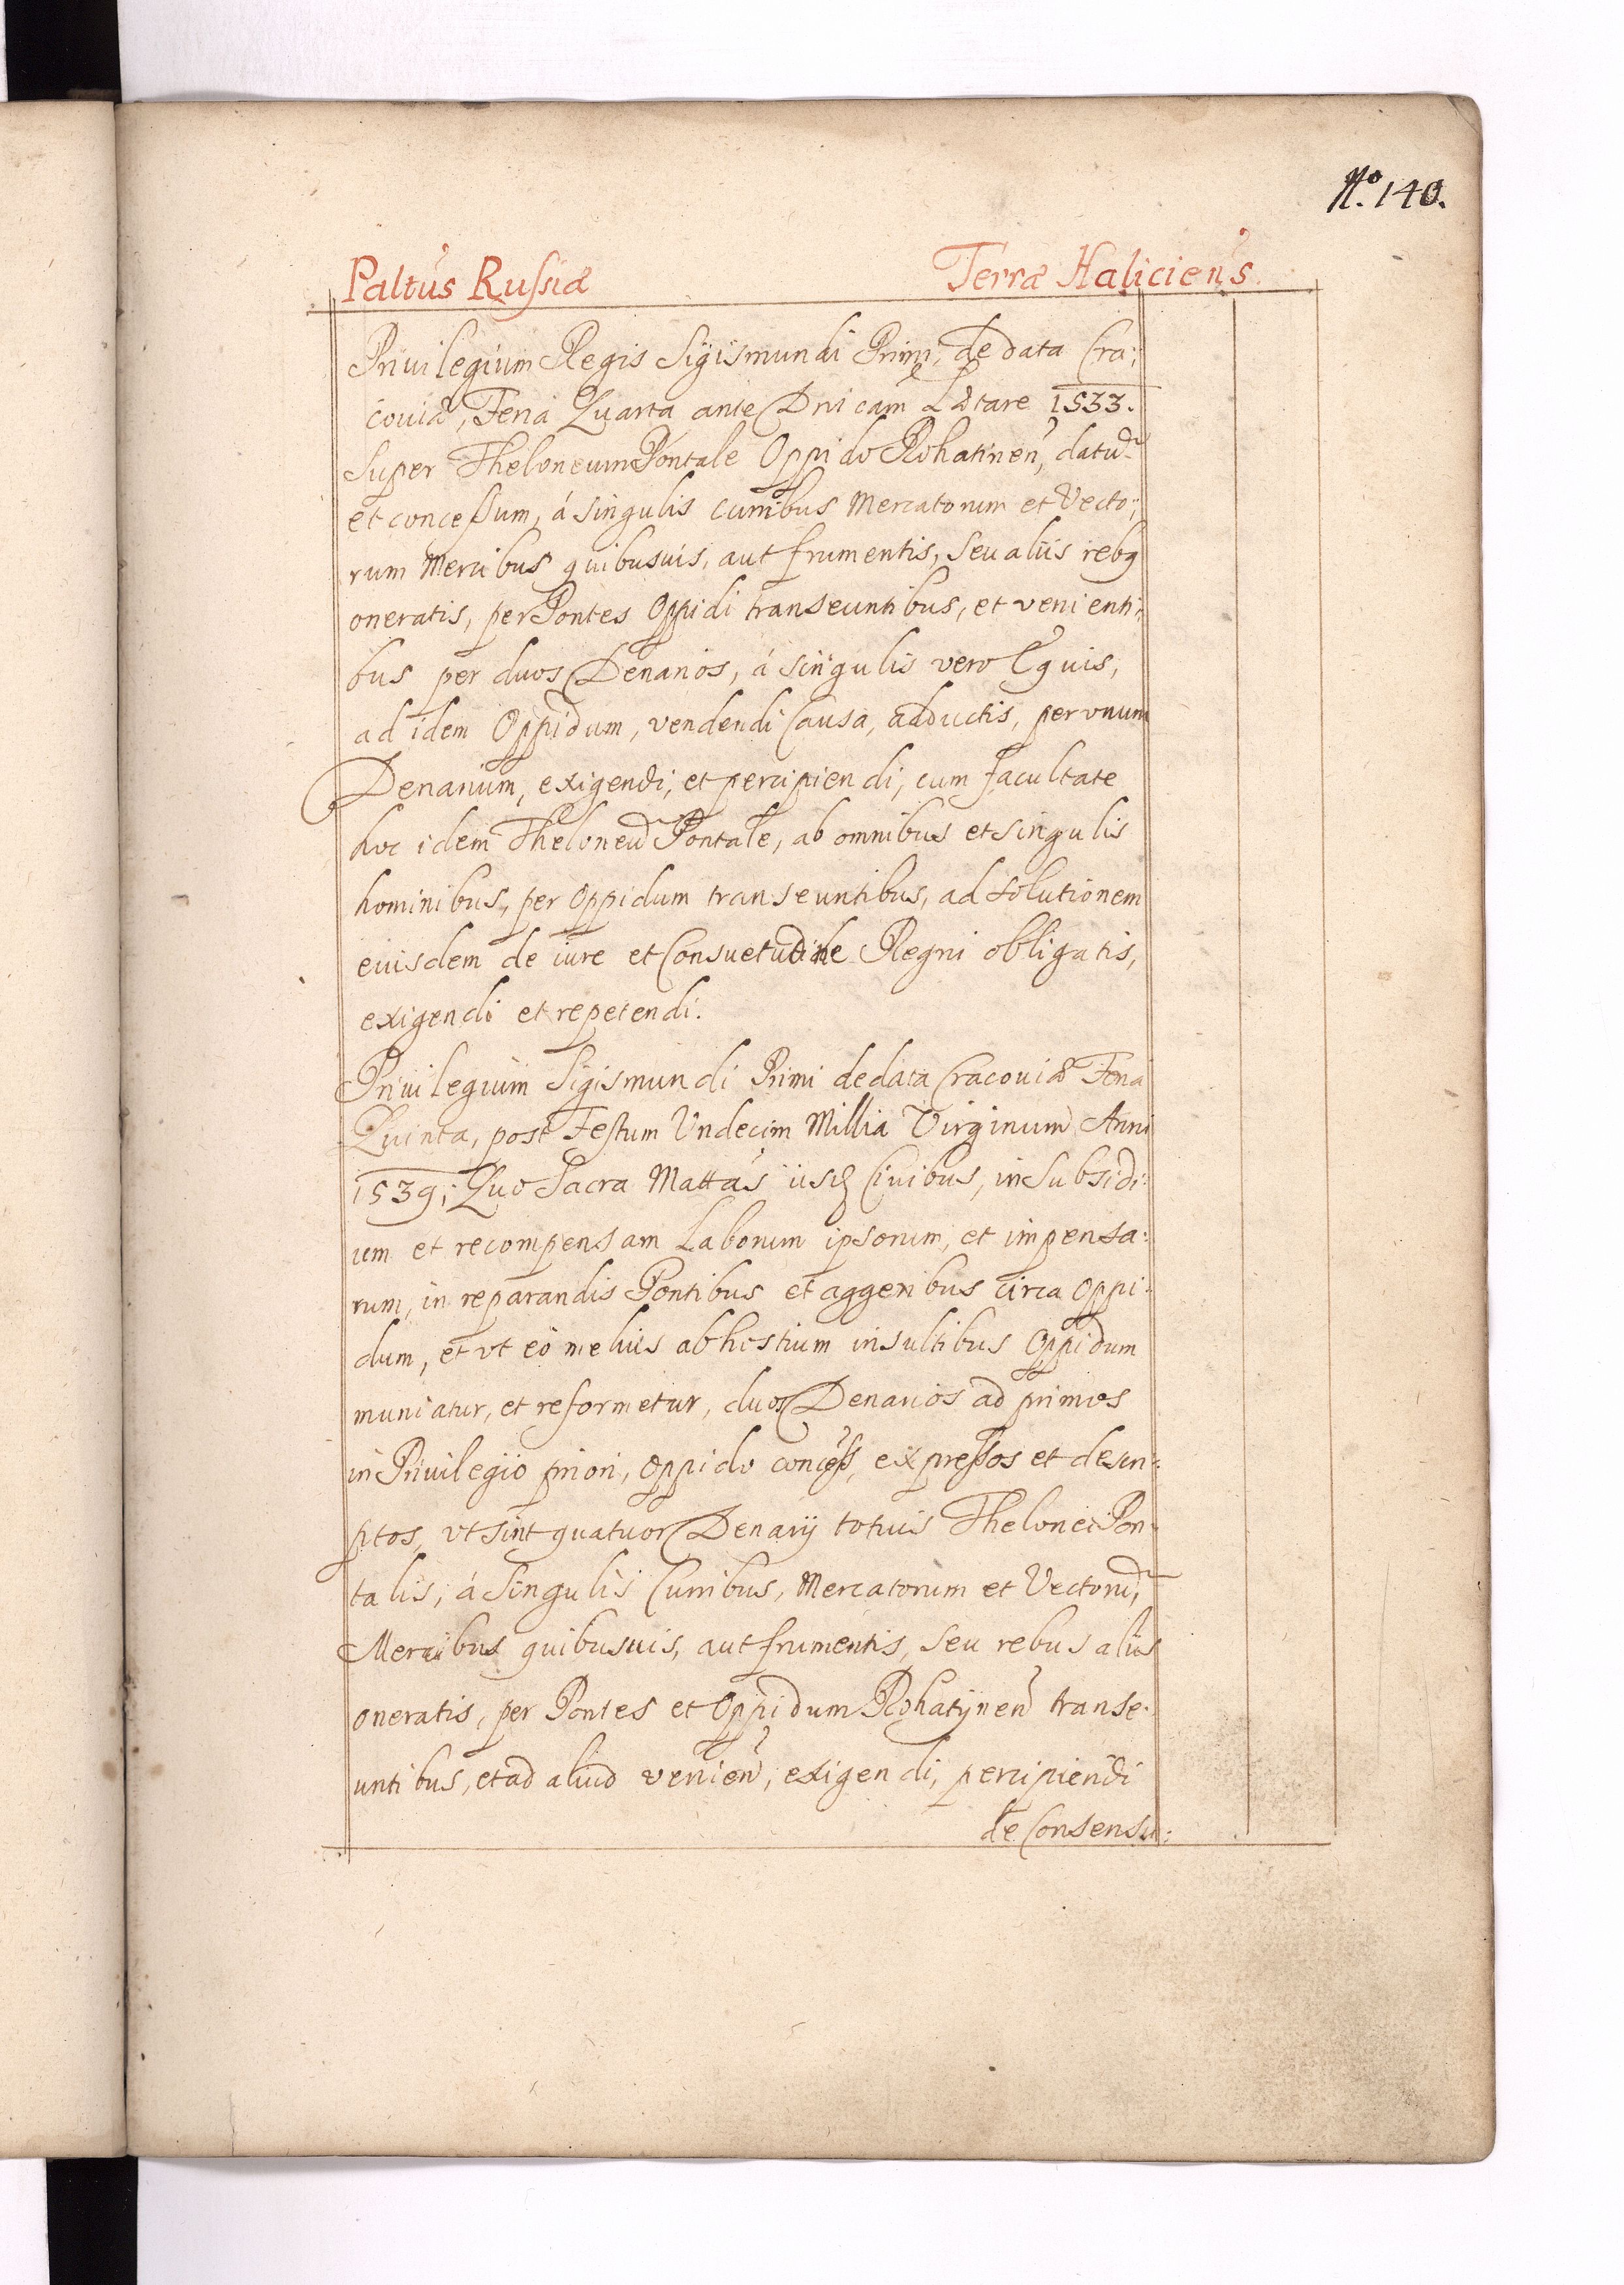 No. 140.
Paltus Russiæ Terræ Haliciens
Privilegium Regis Sigismundi Primi, de data Cra:
coviæ, Feria Quarta ante Dnicam Lætare 1533.
Super Theloneum Pontale Oppido Rohatinen, datũ
et concessum, á singulis curribus Mercatorum et Vecto:
rum Mercibus quibusuis, aut frumentis, Seu aliis rebq
oneratis, per Pontes Oppidi transeuntibus, et venienti:
bus per duos Denarios, á singulis vero Equis,
ad idem Oppidum, vendendi Causa, adductis, per vnum
Denarium, exigendi, et percipiendi, cum facultate
hoc idem Theloneũ Pontale, ab omnibus et singulis
hominibus, per Oppidum transeuntibus, ad solutionem
eiusdem de iure et Consuetudine Regni obligatis,
exigendi et repetendi.
Privilegium Sigismundi Primi de data Cracoviæ Feria
Quinta, post Festum Vndecim Millia Virginum Anni
1539; Quo Sacra Mattas iisd Civibus, in Subsidi:
um et recompensam Laborum ipsorum, et impensa:
rum, in reparandis Pontibus et aggeribus circa Oppi:
dum, et vt eó melius ab hostium insultibus Oppidum
muniatur, et reformetur, duos Denarios ad primos
in Privilegio priori, Oppido concess, expressos et descri:
ptos, vt sint quatuor Denarij totius Thelonei Pon:
talis, á Singulis Curribus, Mercatorum et Vectorũ,
Mercibus quibusuis, aut frumentis, seu rebus aliis
oneratis, per Pontes et Oppidum Rohatijnen transe:
untibus, et ad aliud venien, exigendi, percipiendi
de Consensu: